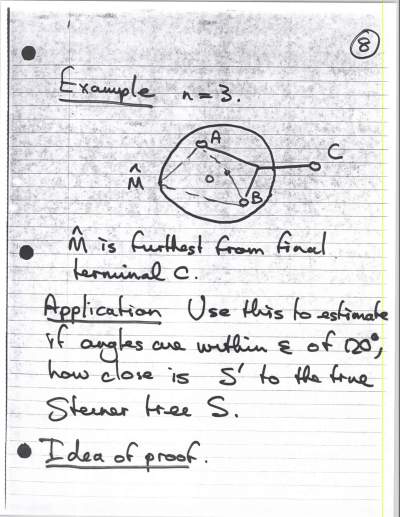 8
Example n = 3.
A
C
M̂
B
M̂ is furthest from final
terminal C.
Application Use this to estimate
if angles are within ε of 120°,
how close is S' to the true
Steiner tree S.
Idea of proof.